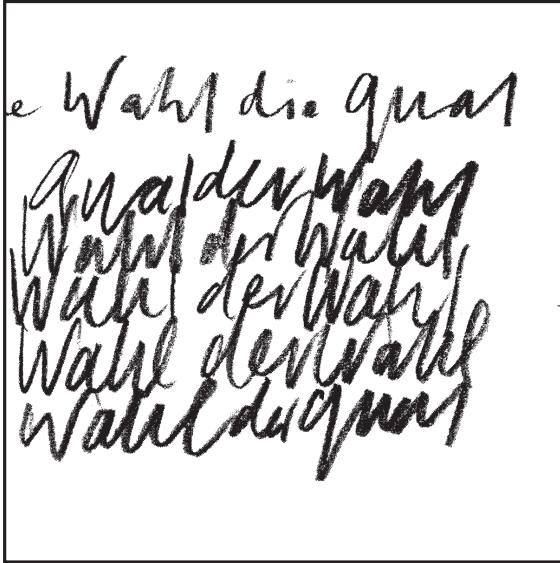 e Wahl die Qual
Qual der Wahl
Wahl der Wahl
Wahl der Wahl
Wahl der Wahl
Wahl der Qual